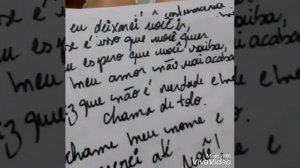 eu deixarei você ir,
se é isso que você quer
eu espero que você saiba,
meu amor não vai acaba
diz que não é verdade e me
chama de tolo.
chame meu nome e
irei até
Made With
VivaVideo